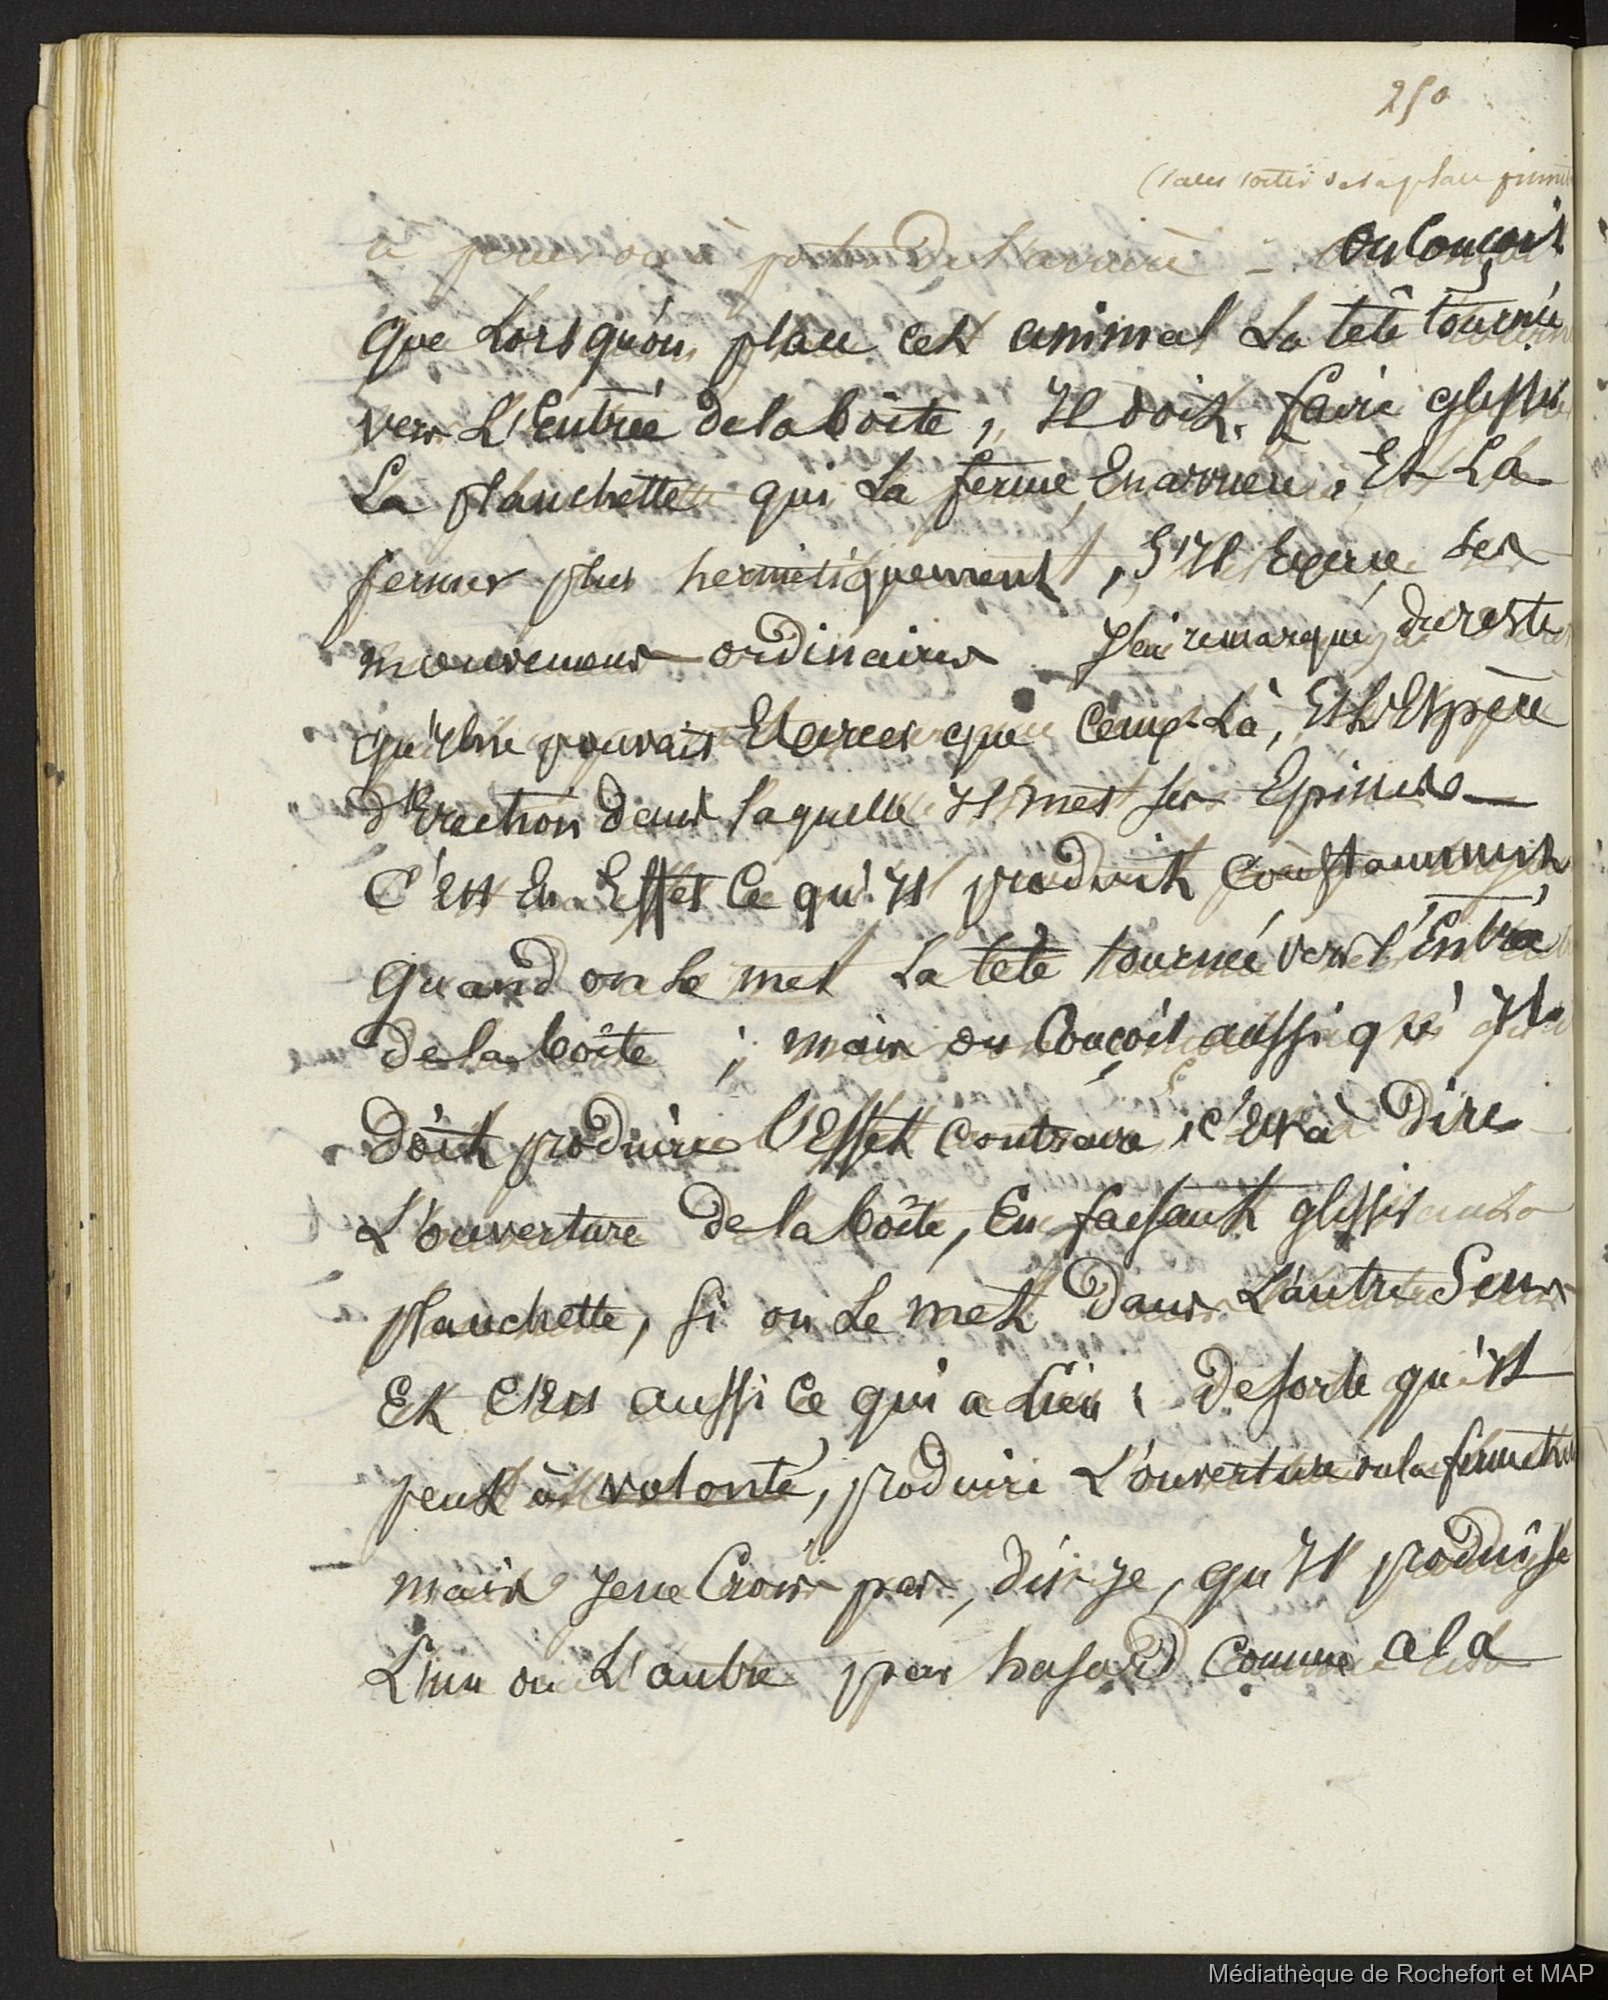 250
(sans sortir de sa place
à de l'arrière - on Conçoit
que Lorsqu'on place cet animal La tête tournée
vers L'Entrée de la boîte, Il doit faire glisser
La planchette qui La ferme En arrière, Et La
fermer plus hermétiquement, S'Il Exerce ses
mouvemens ordinaires J'ai remarqué, du reste
qu'il ne pouvait Exercer que ceux-Là, Et L'Espèce
d'Erection dans laquelle Il met ses Epines —
C'est En Effet Ce qu'Il produit constamment,
quand on Le met La tête tournée vers l'Entrée
de la boîte ; mais on Conçoit aussi qu'Il
doit produire l'Effet contraire, c'est à Dire
L'ouverture de la boîte, En faisant glisser la
planchette, si on Le met Dans L'autre Sens
Et c'est aussi Ce qui a Lieu ; de sorte qu'il
peut à volonté, produire L'ouverture ou la
mais je ne Crois pas, dis-je, qu'Il produise
L'un ou L'autre par hasard Comme à la
Médiathèque de Rochefort et MAP